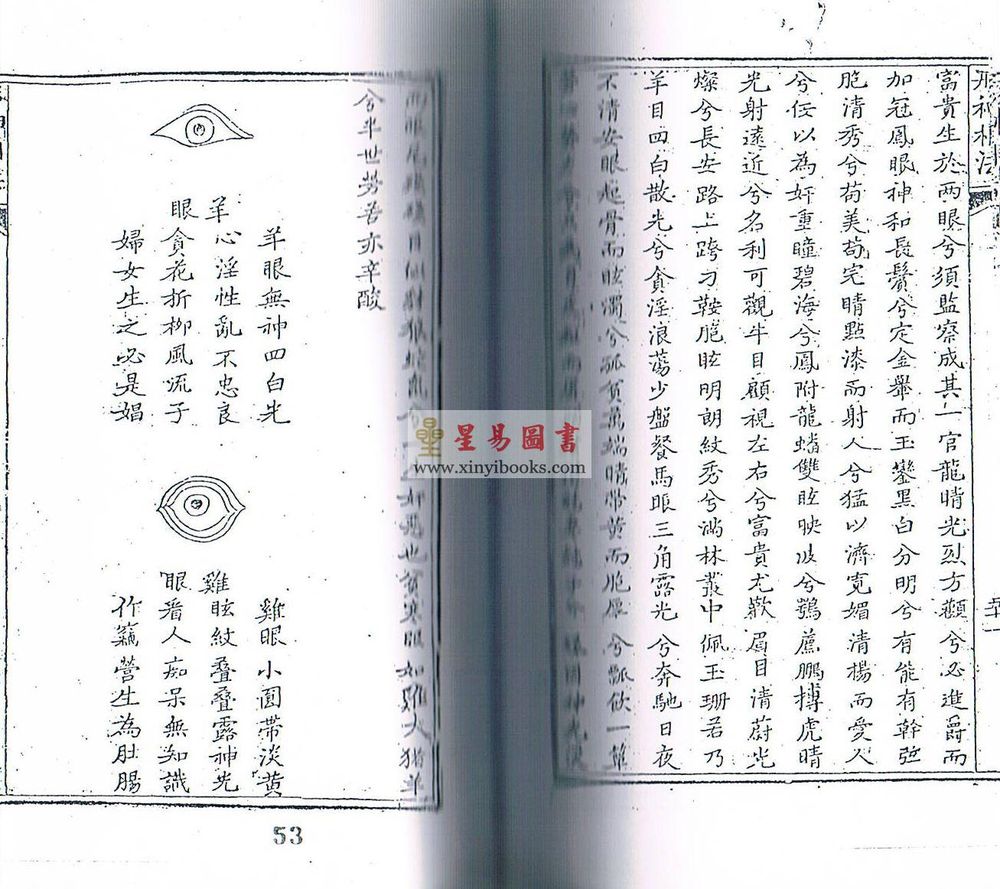 富貴生於两眼兮須監察成其一官龍睛光烈方顴兮必進爵而
加冠鳳眼神和長鬢兮定金舉而玉鑾黑白分明兮有能有幹弦
胞清秀兮苟美苟完睛點漆而射人兮猛以濟寬媚清楊而愛人
兮佞以為奸重瞳碧海兮鳳附龍蟠雙眩映波兮鶚薦鵬搏虎睛
光射遠近兮名利可觀牛目顧視左右兮富貴尤歡眉目清蔚光
燦兮長安路上跨刁鞍胞眩明朗紋秀兮滿林叢中佩玉珊若乃
羊目四白散光兮貪淫浪蕩少盤餐馬眼三角露光兮奔馳日夜
不清安眼起骨而眩濁兮孤貧萬端睛帶黃而胞厚兮瓢飲一簞
奸惡也貧寒眼如雞犬猪羊
兮半世勞苦亦辛酸
羊眼
羊眼無神四白光
心淫性亂不忠良
貪花折柳風流子
婦女生之必是娼
雞眼
雞眼小圓帶淡黃
眩紋叠叠露神光
看人痴呆無知識
作竊營生為肚腸
53
星易圖書
www.xinyibooks.com